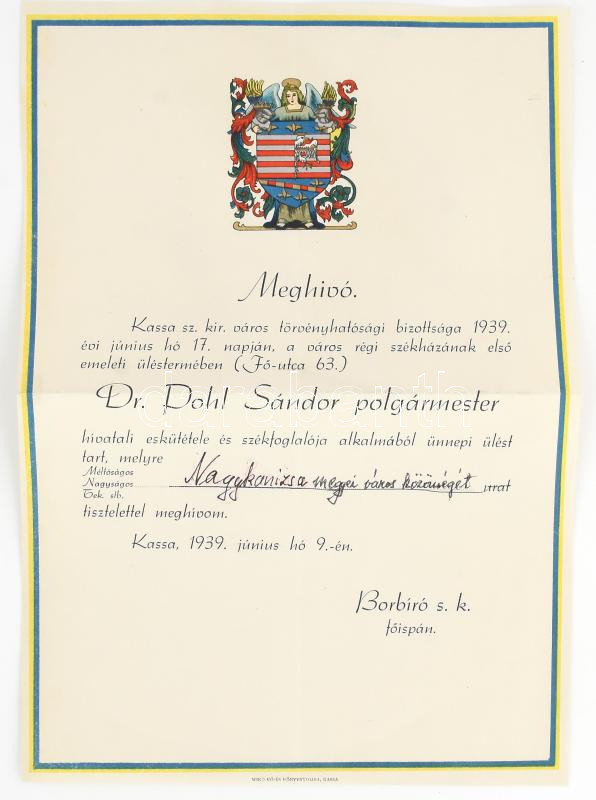 Meghivó.
Kassa sz. kir. város törvényhatósági bizottsága 1939.
évi június hó 17. napján, a város régi székházának első
emeleti üléstermében (Fő-utca 63.)
Dr. Pohl Sándor polgármester
hivatali eskütétele és székfoglalója alkalmából ünnepi ülést
tart, melyre
Méltóságos
Nagyságos
Tek. stb.
Nagykanizsa megyei város közönségét urat
tisztelettel meghivom.
Kassa, 1939. június hó 9.-én.
Borbíró s. k.
főispán.
WIKO KŐ-ÉS KÖNYVNYOMDA, KASSA
darabanth